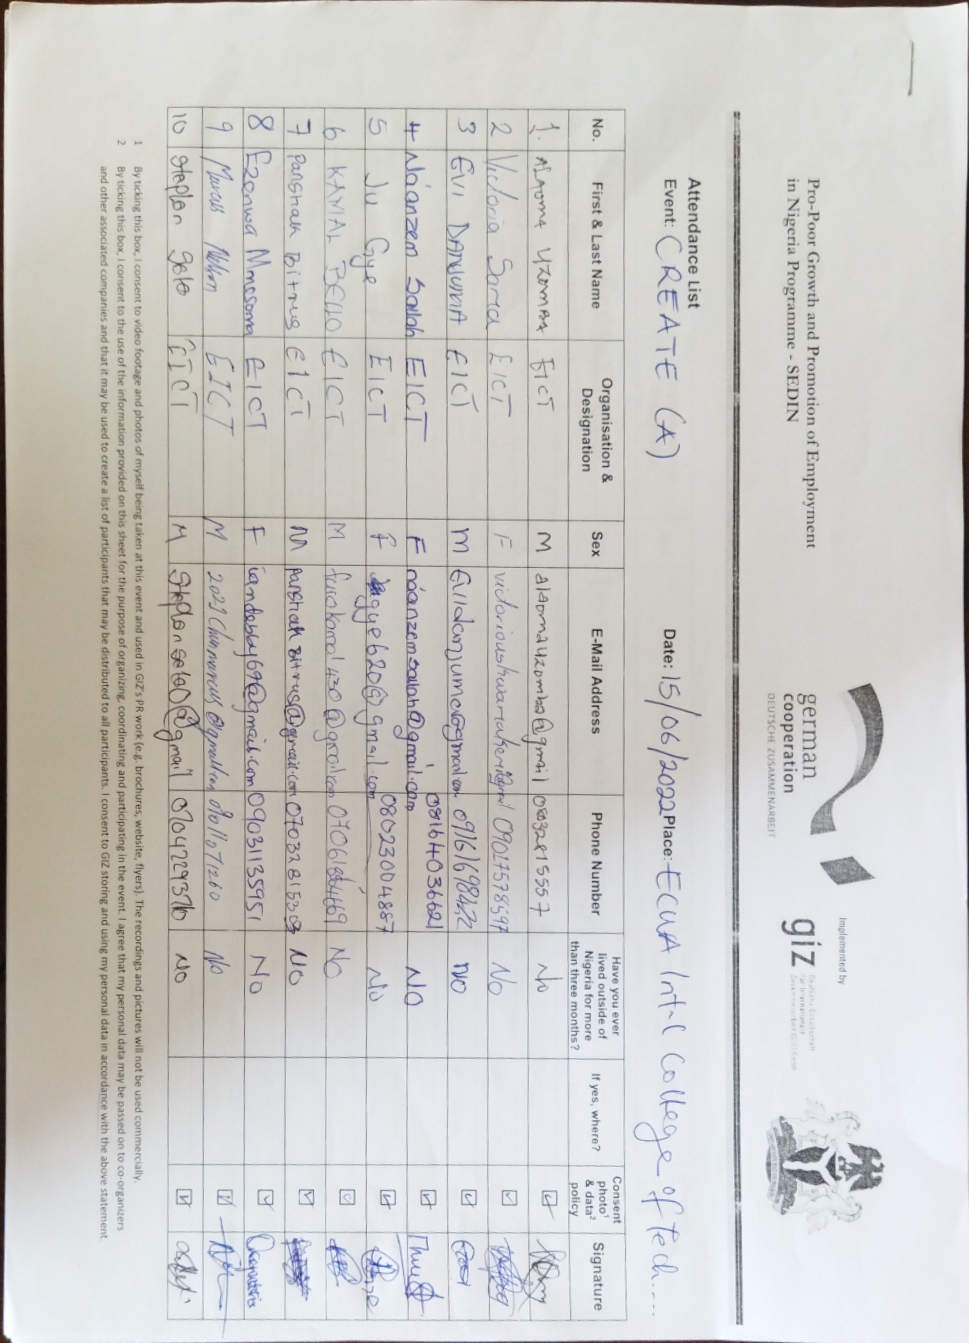 Pro-Poor Growth and Promotion of Employment
in Nigeria Programme - SEDIN
german
cooperation
DEUTSCHE ZUSAMMENARBEIT
Implemented by
giz Deutsche Gesellschaft
für Internationale
Zusammenarbeit (GIZ) GmbH
Attendance List
Event: CREATE (A) Date: 15/06/2022 Place: ECWA Int-l College of Tech....
No. First & Last Name Organisation & Designation Sex E-Mail Address Phone Number Have you ever lived outside of Nigeria for more than three months? If yes, where? Consent photo¹ & data² policy Signature
1. ALAOMA UZOMBA EICT M alaomauzomba@gmail 08032815557 No
2 Victoria EICT F 09017578597 No
3 EVI DANJUMA EICT M Evidanjuma@gmail.com 09161698422 NO
4 Náanzem Sallah EICT F náanzemsallah@gmail.com 08164036621 NO
5 Ju Gye EICT F gye620@gmail.com 08023004887 No
6 KAMAL BELLO EICT M No
7 Panshak Bitrus EICT M Panshak Bitrus@gmail.com 07032815303 No
8 Ezenwa Mmesoma EICT F iandebby69@gmail.com 09031135951 No
9 Marcus Nelson EICT M No
10 Steplon Seto EICT M No
1 By ticking this box, I consent to video footage and photos of myself being taken at this event and used in GIZ's PR work (e.g. brochures, website, flyers). The recordings and pictures will not be used commercially.
2 By ticking this box, I consent to the use of the information provided on this sheet for the purpose of organizing, coordinating and participating in the event. I agree that my personal data may be passed on to co-organizers
and other associated companies and that it may be used to create a list of participants that may be distributed to all participants. I consent to GIZ storing and using my personal data in accordance with the above statement.